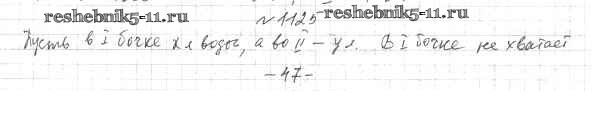 reshebnik5-11.ru
№1125
reshebnik5-11.ru
Пусть в I бочке x л воды, а во II – y л. В I бочке не хватает
– 47 –